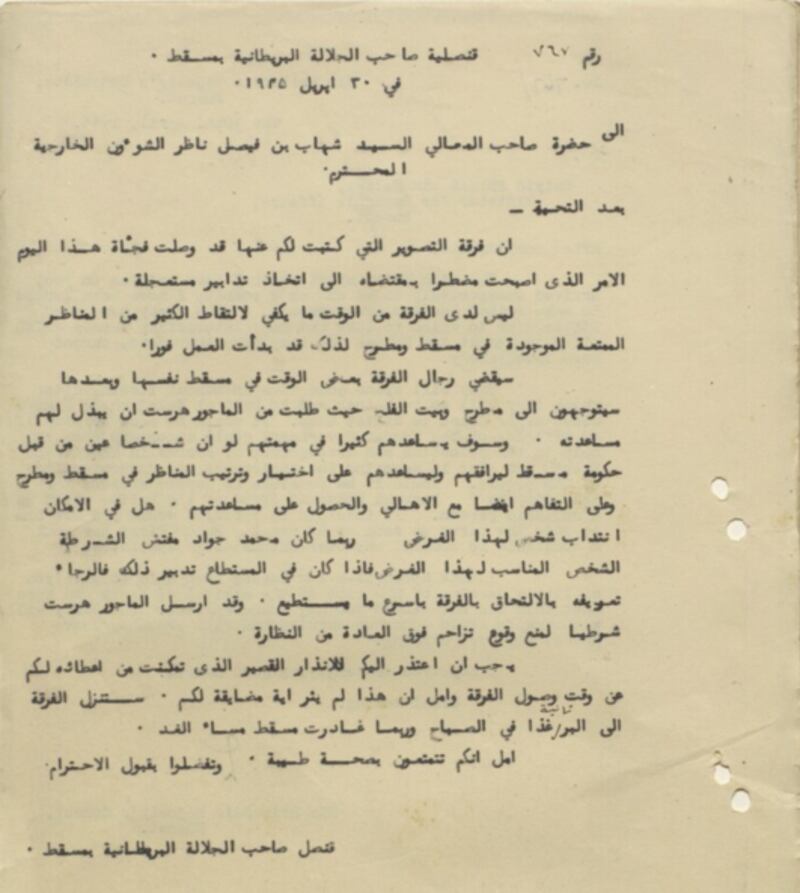 رقم ٧٦٧ قنصلية صاحب الجلالة البريطانية بمسقط ٠
في ٣٠ ابريل ١٩٤٥٠
الى
حضرة صاحب المعالي السيد شهاب بن فيصل ناظر الشوءون الخارجية
المحترم٠
بعد التحية —
ان فرقة التصوير التي كتبت لكم عنها قد وصلت فجأة هذا اليوم
الامر الذى اصبحت مضطرا بمقتضاه الى اتخاذ تدابير مستعجلة ٠
ليس لدى الفرقة من الوقت ما يكفي لالتقاط الكثير من المناظر
الممتعة الموجودة في مسقط ومطرح لذلك قد بدأت العمل فورا٠
سيقضي رجال الفرقة بعض الوقت في مسقط نفسها وبعدها
سيتوجهون الى مطرح وبيت الفلج حيث طلبت من الماجور هرست ان يبذل لهم
مساعدته ٠ وسوف يساعدهم كثيرا في مهمتهم لو ان شخصا عين من قبل
حكومة مسقط ليرافقهم وليساعدهم على اختيار وترتيب المناظر في مسقط ومطرح
وعلى التفاهم ايضا مع الاهالي والحصول على مساعدتهم ٠ هل في الامكان
انتداب شخص لهذا الغرض ربما كان محمد جواد مفتش الشرطة
الشخص المناسب لهذا الغرض فاذا كان في المستطاع تدبير ذلك فالرجاء
تعريفه بالالتحاق بالفرقة باسرع ما يستطيع ٠ وقد ارسل الماجور هرست
شرطيا لمنع وقوع تزاحم فوق العادة من النظارة ٠
يجب ان اعتذر اليكم للانذار القصير الذى تمكنت من اعطائه لكم
عن وقت وصول الفرقة وامل ان هذا لم يثر اية مضايقة لكم ٠ ستنزل الفرقة
الى البر/ثانية غدا في الصباح وربما غادرت مسقط مساء الغد ٠
امل انكم تتمتعون بصحة طيبة ٠ وتفضلوا بقبول الاحترام
قنصل صاحب الجلالة البريطانية بمسقط ٠